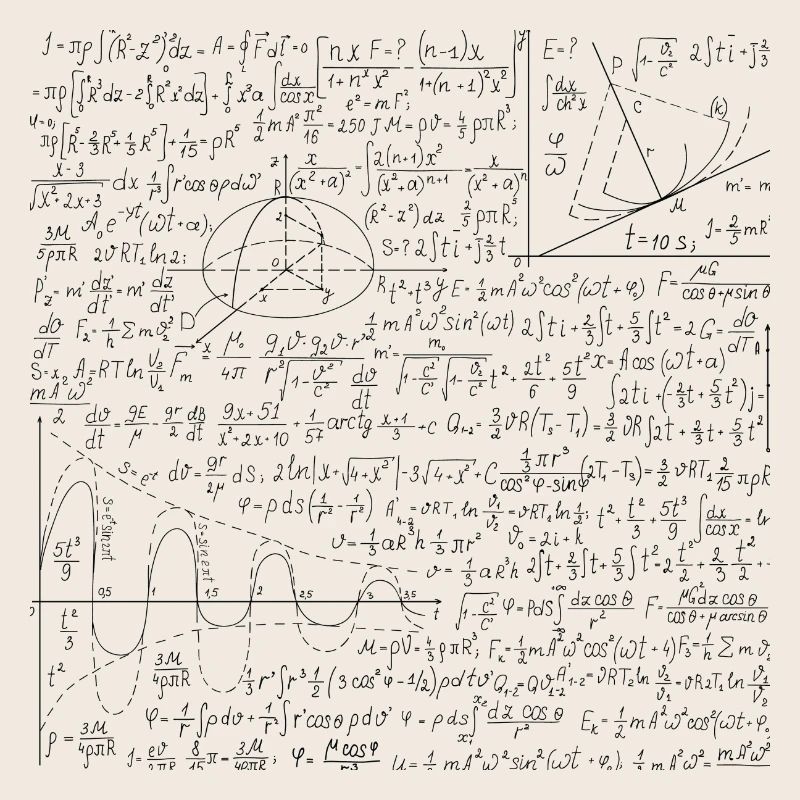 J = πρ∫(R²-z²)²dz = A = ∮F⃗dl⃗ = 0 [nxF=? / 1+nˣx² (n-1)x / 1+(n+1)²x²] y E=? P √1-v²/c² 2∫ti+j2/3
= πρ[∫R³dz-2∫R²x²dz]+∫x³a ∫dx/cosx e²=mF²; ∫dx/ch²x C (k)
πρ[R⁵-2/3R⁵+1/5R⁵]+1/15=ρR⁵ 1/2mA²π²/16=250J M=ρV=4/5ρπR³; φ/ω r
x-3/√x²+2x+3 dx 1/r³∫r'cosθρdω z R x/(x²+a)² = ∫2(n+1)x²/(x²+a)ⁿ⁺¹ = x/(x²+a)ⁿ m'=m
A₀e⁻ʸᵗ(ωt+a); 2 (R²-z²)dz 2/5ρπR⁵; M
3M/5ρπR 2υRT₁ln2; 0 S=? 2∫ti+j2/3t t=10s; J=2/5mR²
P'z=m'dz'/dt'=m'dz/dt' x y Rt²+t³y E=1/2mA²ω²cos²(ωt+φ₀) F=μG/cosθ+μsinθ
dO/dT F₂=1/h Σmυ² D 1/2mA²ω²sin²(ωt) 2∫ti+2/3∫t+5/3∫t²=2G=dO/dT A
S=x₂ A=RTlnV₂/V₁ F⃗m x = μ₀/4π g₁υ·g₂υ·r²/r²√1-υ²/c² dυ/dt m'=m₀/√1-c²/c'√1-υ²/c² t²+2t²/6+5t²/9 x=Acos(ωt+a)
mA²ω²/2 ∫2ti+(-2/3t+5/3t²)j=
dυ/dt=gE/μ-gr/2 dB/dt 9x+51/x²+2x+10+1/57arctg x+1/3+c Q₁₋₂=3/2υR(T₃-T₁)=3/2υR∫2t+2/3t+5/3t²
S=e⁻ˣ dυ=gr/2μ dS; 2ln|x+√4+x²|-3√4+x²+C 1/3πr³/cos²φ-sinφ(2T₁-T₃)=3/2υRT₁2/15πρR
S=eᵗsin2πt φ=ρds(1/r²-1/r²) A'₄₋₂=υRT₁lnυ₁/υ₂=υRT₁ln1/2; t²+t²/3+5t³/9 ∫dx/cosx=ln
S=sin2πt υ=1/3aR³h 1/3πr² υ₀=2i+k
5t³/9 υ=1/3aR³h 2∫t+2/3∫t+5/3∫t²-2t²/2+2/3t²/2+
0,5 1 1,5 2 2,5 3 3,5 t
√1-c²/c' φ=Pds∫dzcosθ/r² F=μG²dzcosθ/cosθ+μarcsinθ
t²/3 M=ρV=4/3ρπR³; Fₖ=1/2mA²ω²cos²(ωt+4)F₃=1/h Σmυ₂
t² 3M/4ρπR 1/3r'∫r³1/2(3cos²φ-1/2)ρdtυ'Q₁₋₂=Qυ₁₋₂A'₁₋₂=υRT₂lnυ₂/υ₁=υR2T₁lnV₁/V₂
ρ=3M/4ρπR φ=1/r∫ρdυ+1/r²∫r'cosθρdυ' φ=ρds∫dzcosθ/r² Eₖ=1/2mA²ω²cos²(ωt+φ₀
J=eυ/2πR 8/15π=3M/4ρπR; φ=μcosφ/r³ U=1/2mA²ω²sin²(ωt+φ₀); 1/2mA²ω²=mA²ω²